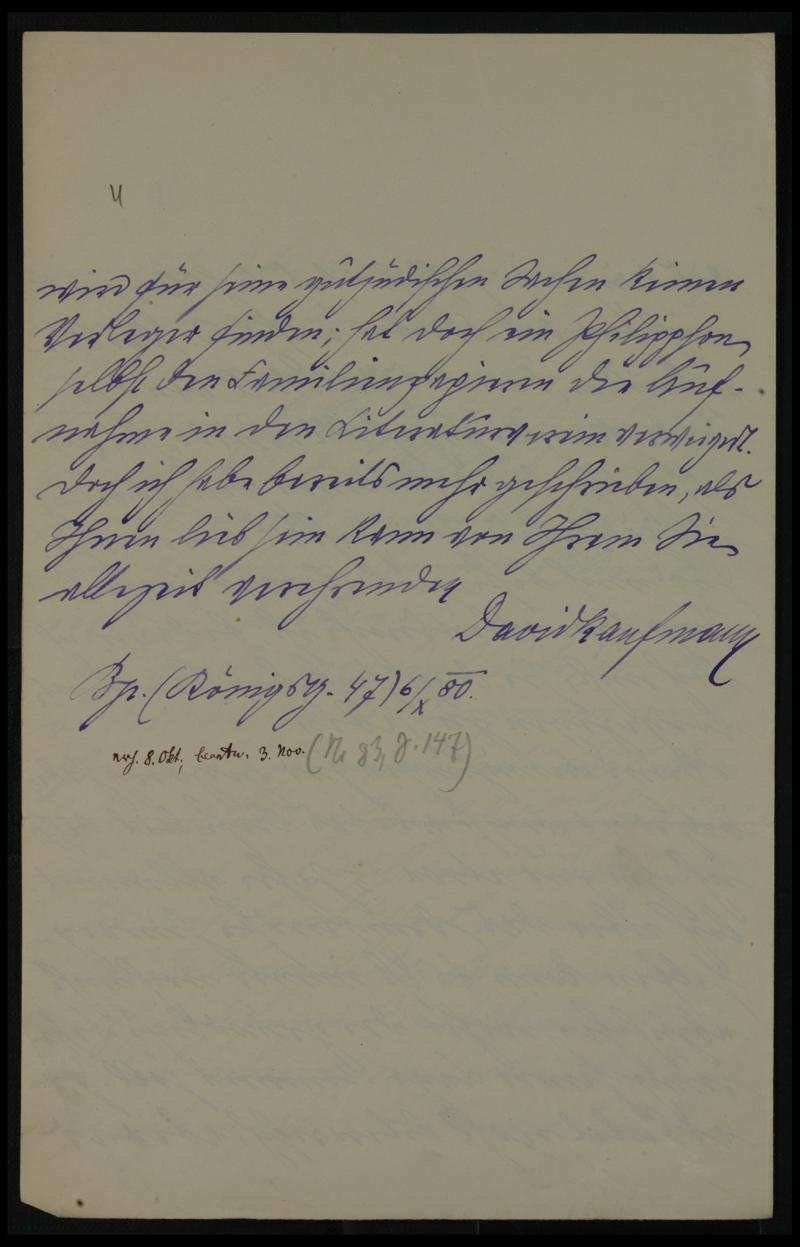 4
wird für seine gutjüdischen Sachen keinen
Verleger finden; hat doch ein Philippson
selbst den Familienpapieren die Auf-
nahme in den Literaturverein verweigert.
Doch ich habe bereits mehr geschrieben, als
Ihnen lieb sein kann von Ihrem Sie
allezeit verehrenden
David Kaufmann
Bp. (Königsg. 47) 6/X 80.
8. Okt., beantw. 3. Nov. (No 83, J. 147)